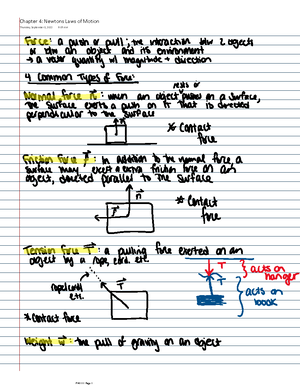 Chapter 4: Newtons Laws of Motion
Force: a push or pull; the interaction btw 2 objects
or btw an object and its environment
→ a vector quantity w/ magnitude + direction
4 Common Types of Force:
rests or
Normal Force n⃗: when an object pushes on a surface,
the surface exerts a push on it that is directed
perpendicular to the surface
n
* Contact
force
Friction Force f⃗: In addition to the normal force, a
surface may exert a friction force on an
object, directed parallel to the surface
n
f
* Contact
force
Tension Force T⃗: a pulling force exerted on an
object by a rope, cord, etc.
rope/cord
etc.
T
acts on
hanger
T
acts on
book
* Contact force
Weight w⃗: the pull of gravity on an object